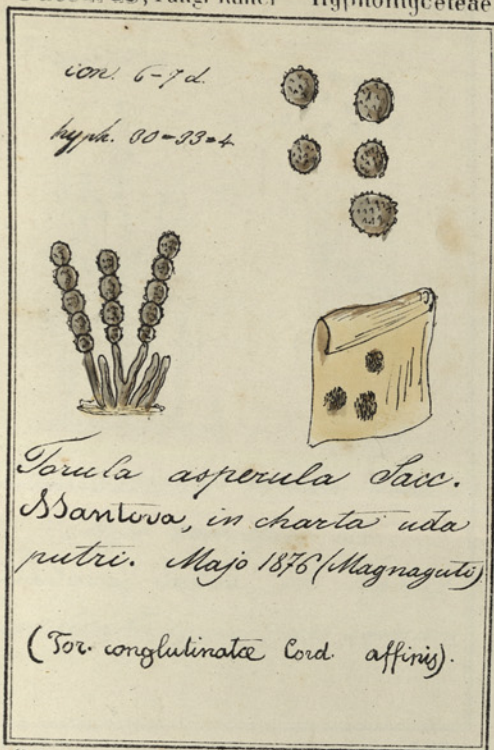 Fungi Hyphomyceteae
con. 6-7 d.
hyph. 30=33=4
Torula asperula Sacc.
Mantova, in charta uda
putri. Majo 1876 (Magnaguti)
(Tor. conglutinatæ Cord. affinis).